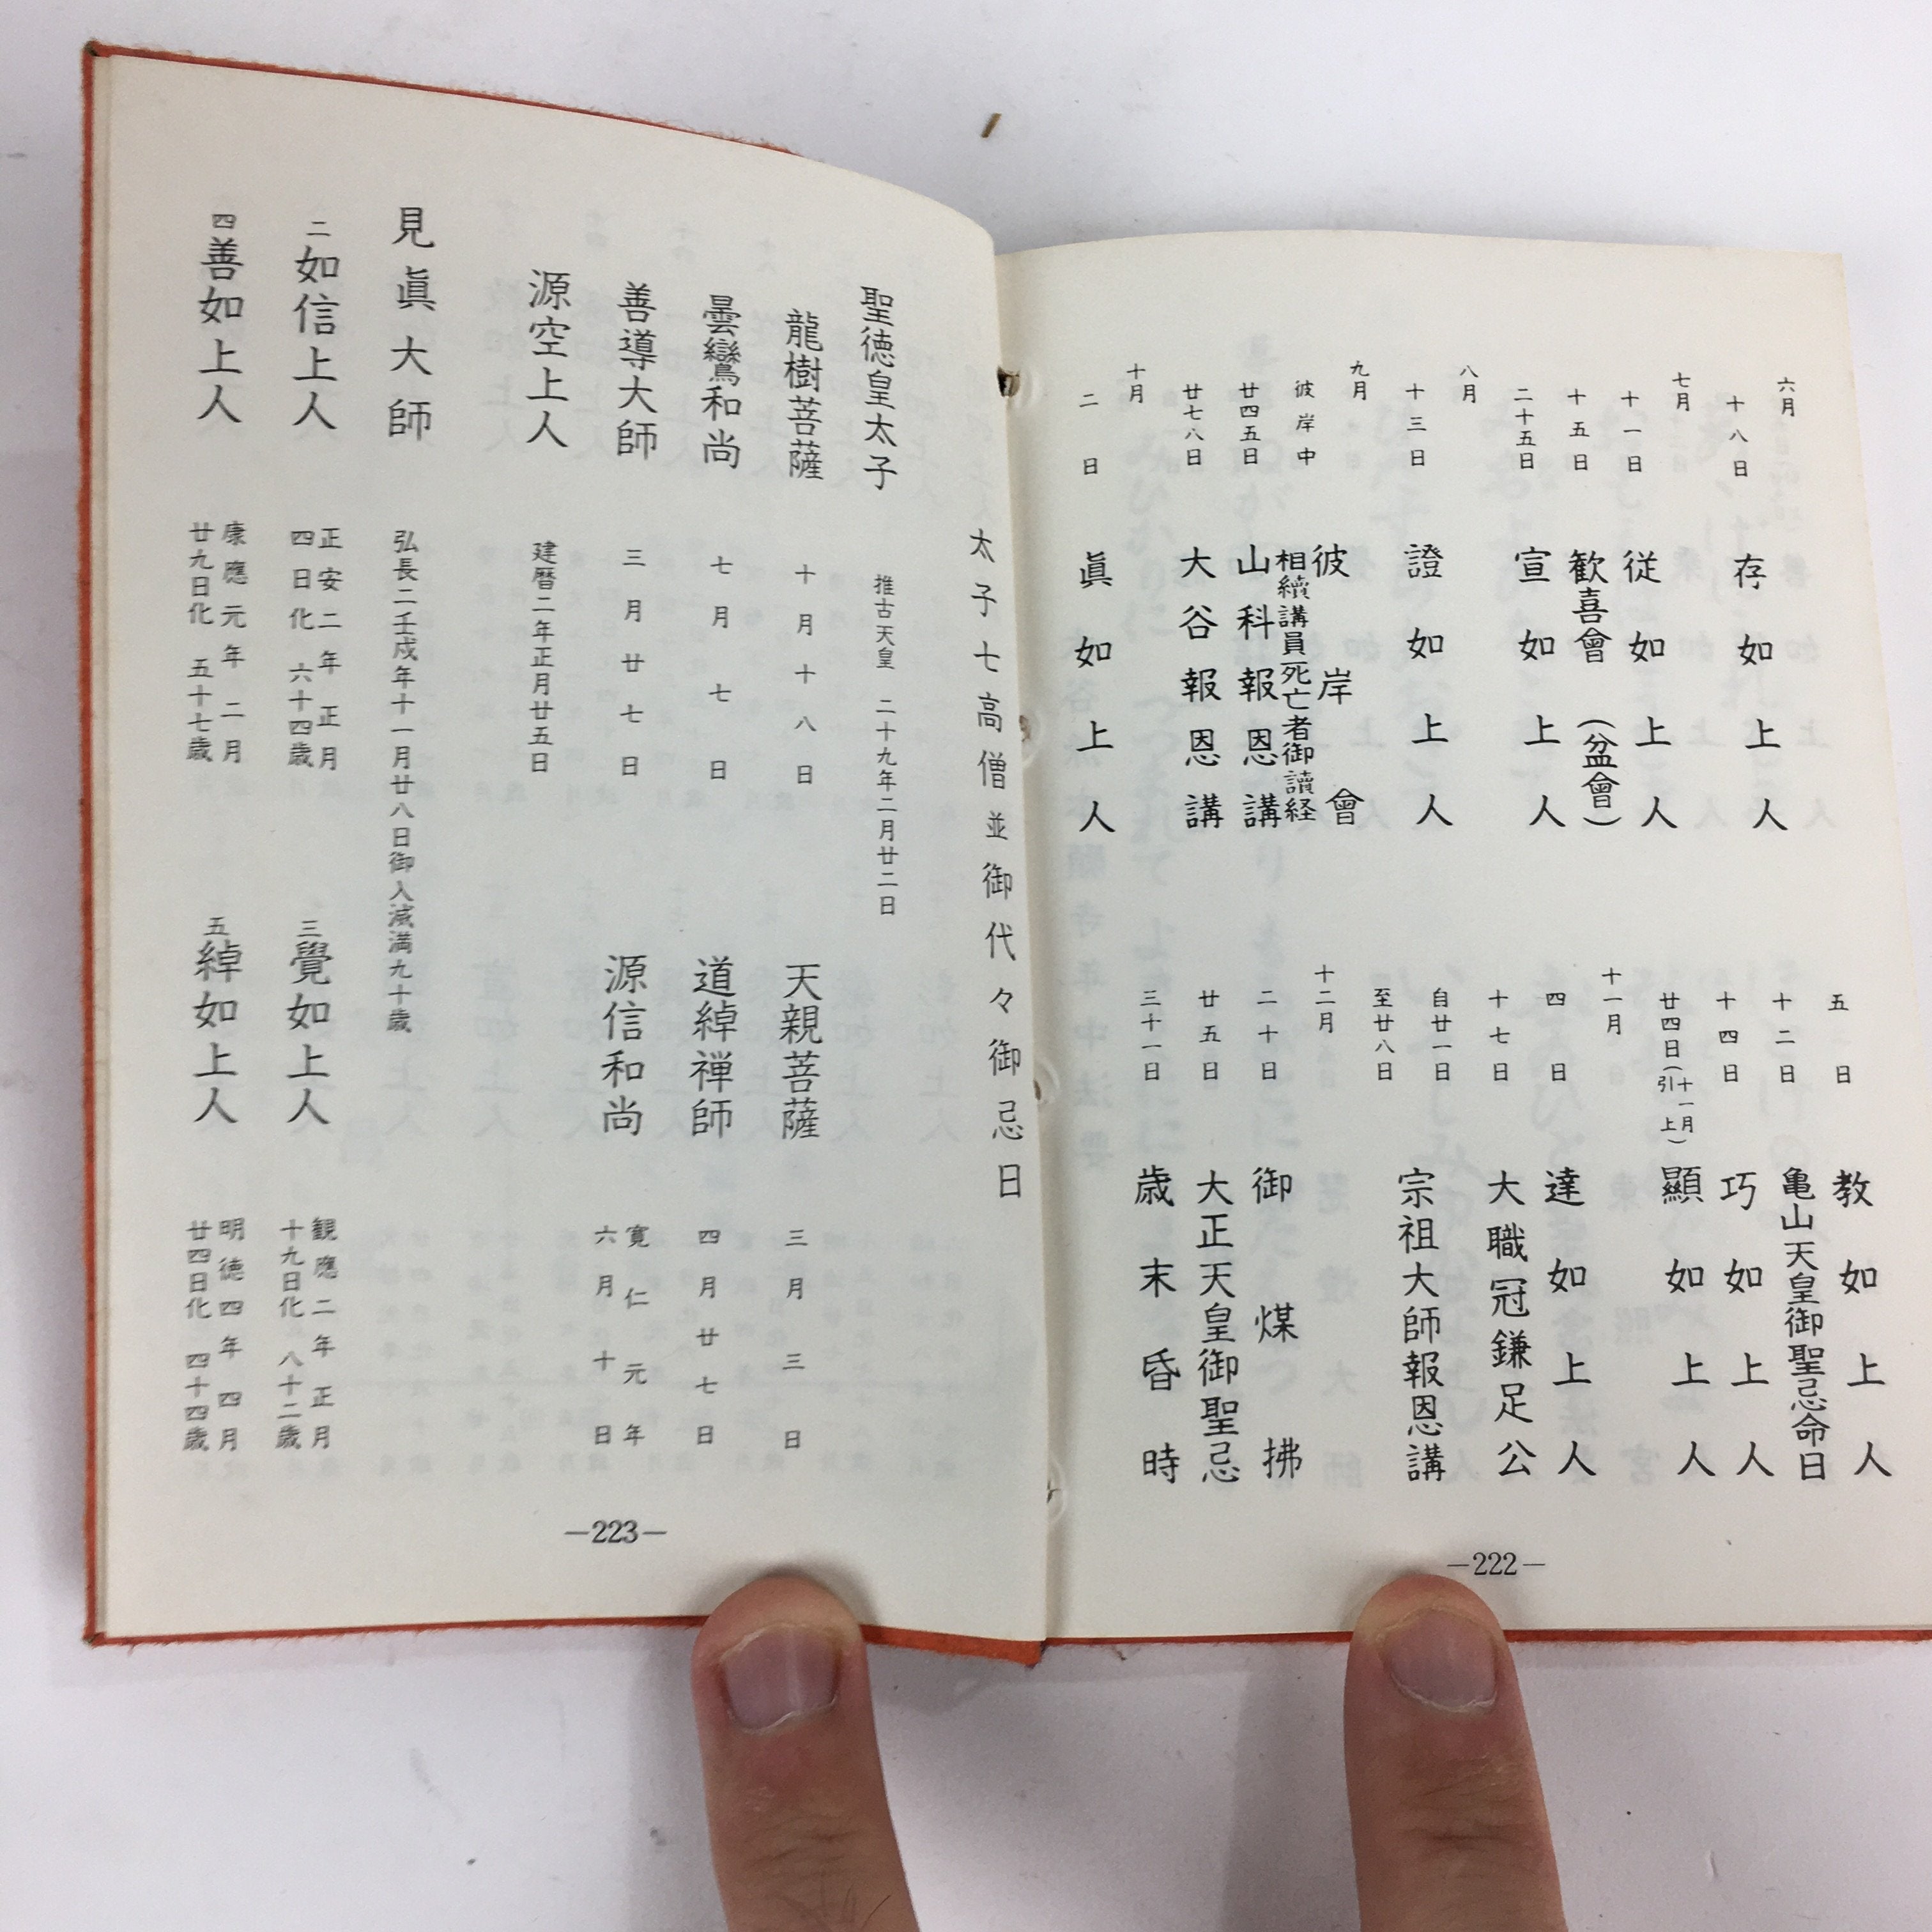 六月
十八日 存如上人
七月
十一日 従如上人
十五日 歓喜會(盆會)
二十五日 宣如上人
八月
十三日 證如上人
九月
彼岸中 彼岸會
相續講員死亡者御讀経
廿四五日 山科報恩講
廿七八日 大谷報恩講
十月
二日 眞如上人
五日 教如上人
十二日 亀山天皇御聖忌命日
十四日 巧如上人
廿四日(十一月引上) 顯如上人
十一月
四日 達如上人
十七日 大職冠鎌足公
自廿一日
至廿八日 宗祖大師報恩講
十二月
二十日 御煤拂
廿五日 大正天皇御聖忌
三十一日 歳末昏時
—222—
太子七高僧並御代々御忌日
聖徳皇太子 推古天皇 二十九年二月廿二日
龍樹菩薩 十月十八日
天親菩薩 三月三日
曇鸞和尚 七月七日
道綽禅師 四月廿七日
善導大師 三月廿七日
源信和尚 寛仁元年六月十日
源空上人 建暦二年正月廿五日
見眞大師 弘長二壬戌年十一月廿八日御入滅満九十歳
二如信上人 正安二年正月四日化 六十四歳
三覺如上人 観應二年正月十九日化 八十二歳
四善如上人 康應元年二月廿九日化 五十七歳
五綽如上人 明徳四年四月廿四日化 四十四歳
—223—